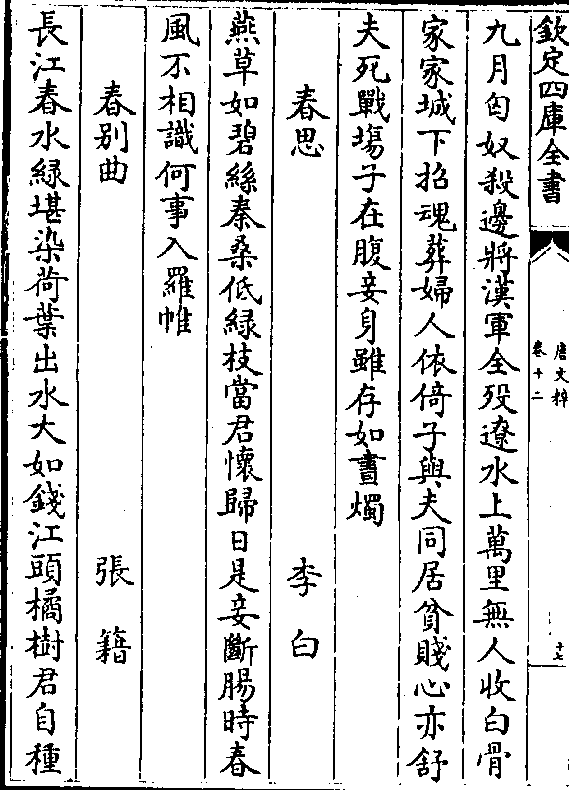 欽定四庫全書
唐文粹
卷十二
十七
九月匈奴殺邊將漢軍全歿遼水上萬里無人收白骨
家家城下招魂葬婦人依倚子與夫同居貧賤心亦舒
夫死戰塲子在腹妾身雖存如晝燭
春思 李白
燕草如碧絲秦桑低緑枝當君懷歸日是妾斷腸時春
風不相識何事入羅帷
春别曲 張籍
長江春水緑堪染荷葉出水大如錢江頭橘樹君自種